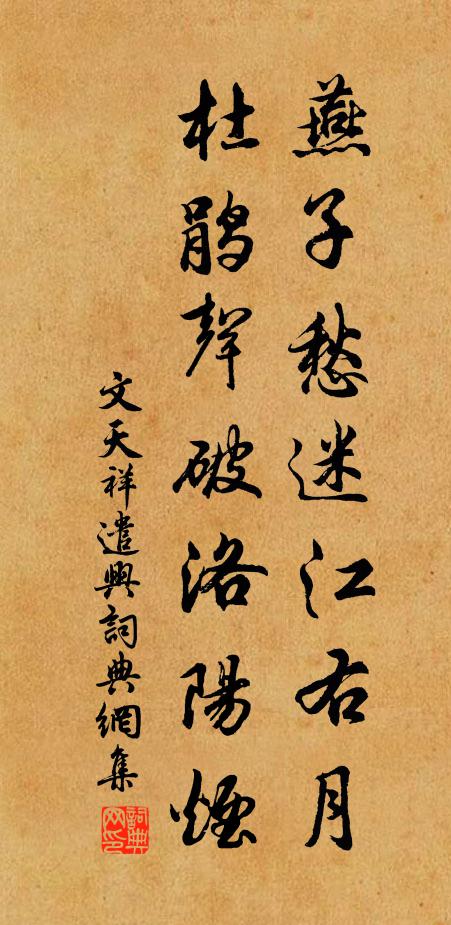 燕子愁迷江右月
杜鹃聲破洛陽煙
文天祥遣興詞典網集
詞典
网印